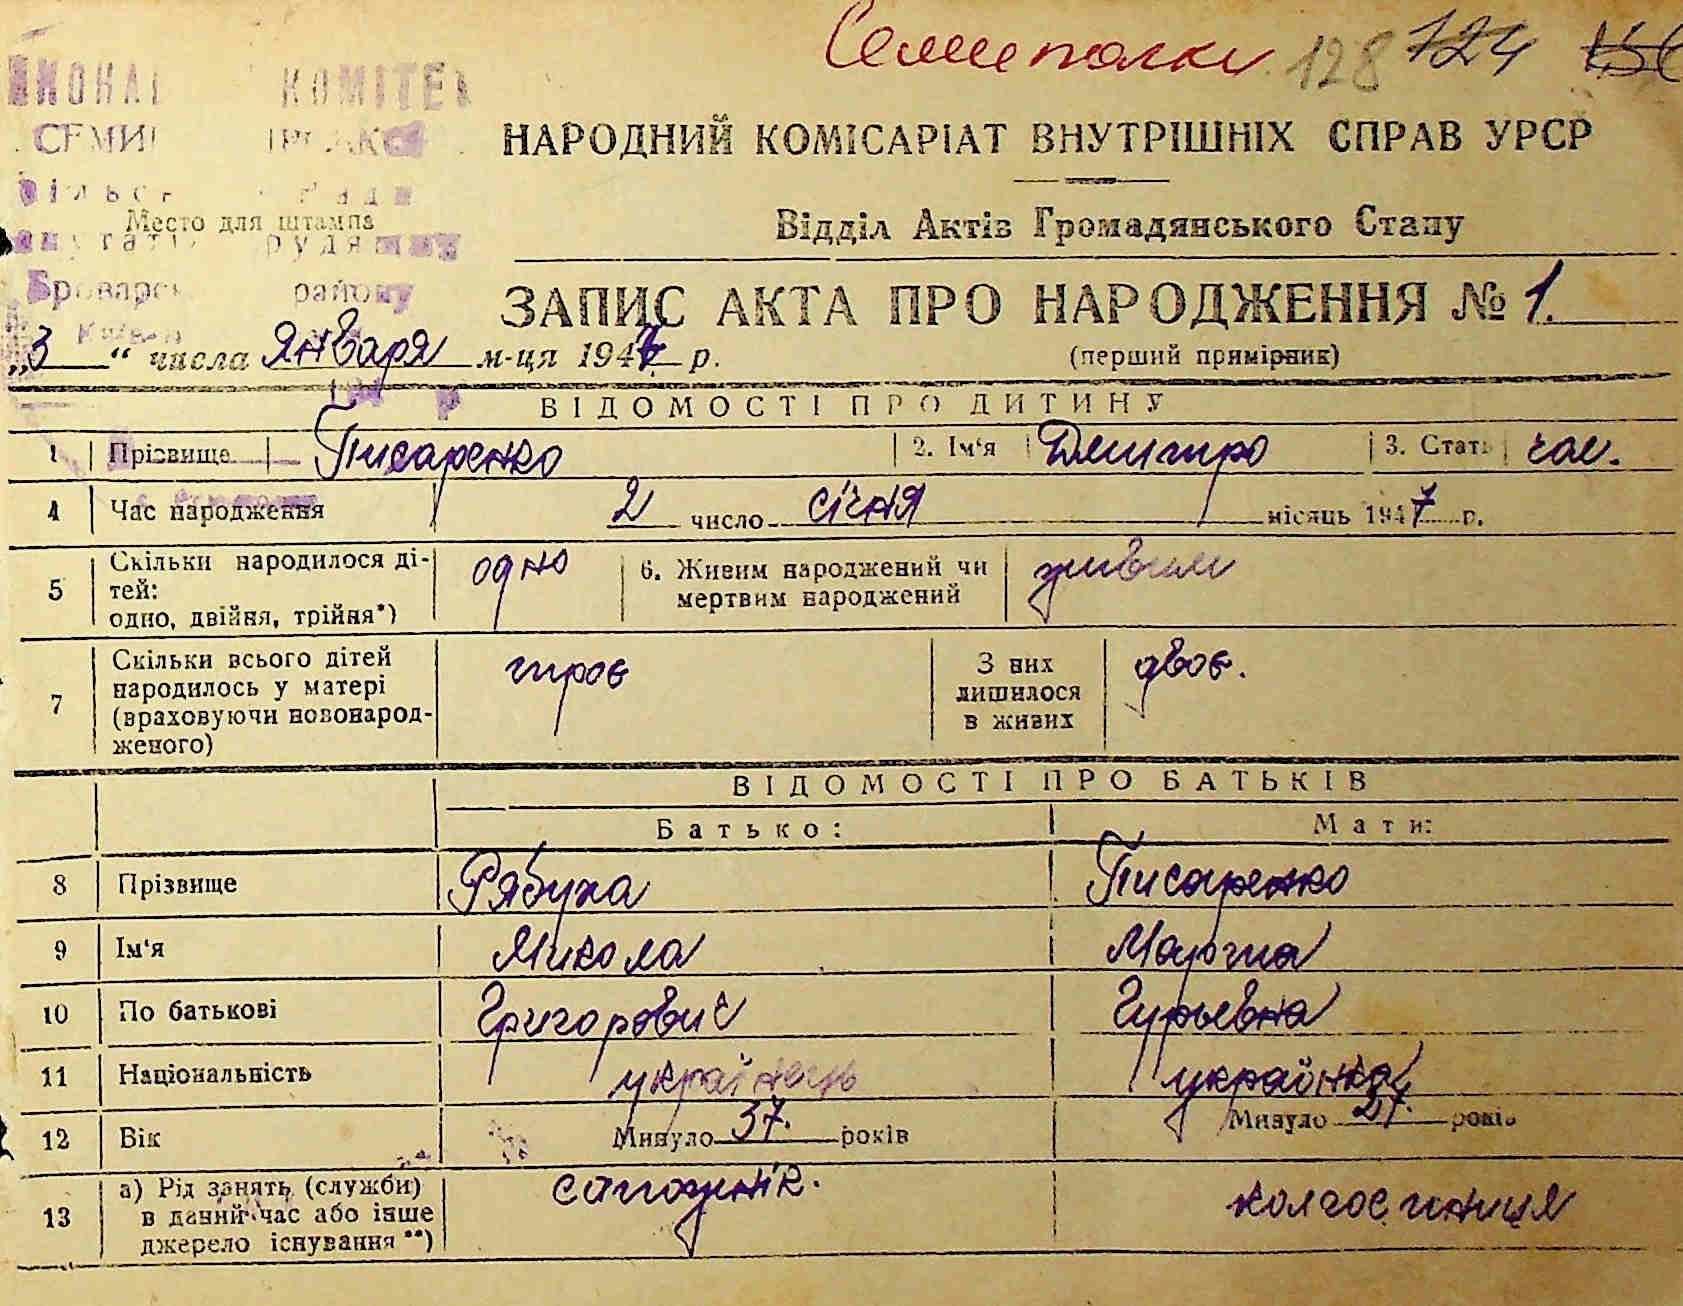 Семиполки 128 124
КОМІТЕ
СЕМИ
Место для штампа
Броварс району
НАРОДНИЙ КОМІСАРІАТ ВНУТРІШНІХ СПРАВ УРСР
Відділ Актів Громадянського Стану
ЗАПИС АКТА ПРО НАРОДЖЕННЯ № 1.
„3“ числа Января м-ця 1947 р.
(перший примірник)
ВІДОМОСТІ ПРО ДИТИНУ
1 Прізвище Писаренко 2. Ім'я Дмитро 3. Стать чол.
4 Час народження 2 число січня місяць 1947 р.
5 Скільки народилося дітей: одно, двійня, трійня*) одно 6. Живим народжений чи мертвим народжений живим
7 Скільки всього дітей народилось у матері (враховуючи новонародженого) троє З них лишилося в живих двоє.
ВІДОМОСТІ ПРО БАТЬКІВ
Батько: Мати:
8 Прізвище Рябуха Писаренко
9 Ім'я Микола Марфа
10 По батькові Григорович Гурьевна
11 Національність українець українка
12 Вік Минуло 37. років Минуло 27. років
13 а) Рід занять (служби) в даний час або інше джерело існування **) сапожнік. колгоспниця